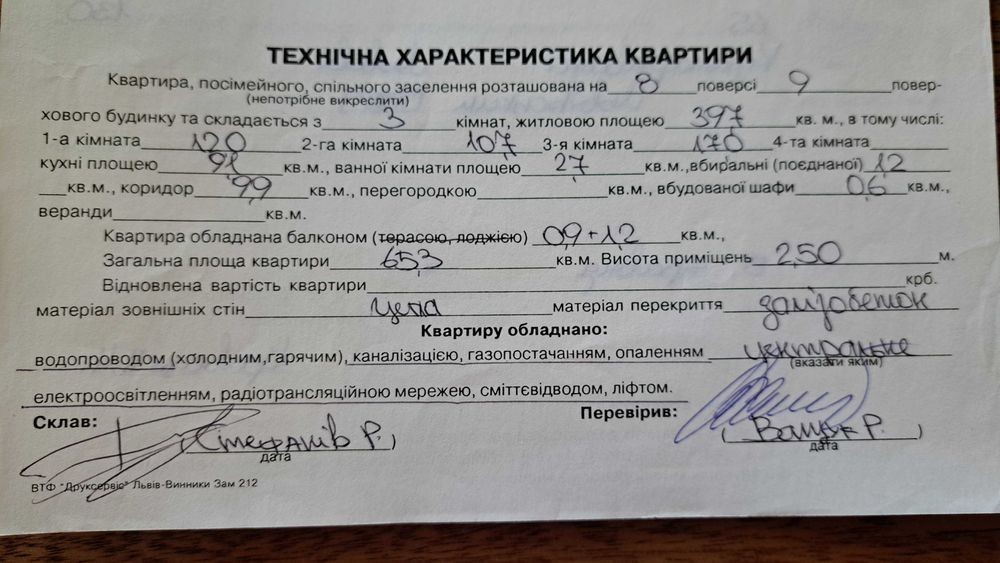 ТЕХНІЧНА ХАРАКТЕРИСТИКА КВАРТИРИ
Квартира, посімейного, спільного заселення розташована на 8 поверсі 9 повер-
(непотрібне викреслити)
хового будинку та складається з 3 кімнат, житловою площею 39,7 кв. м., в тому числі:
1-а кімната 12,0 2-га кімната 10,7 3-я кімната 17,0 4-та кімната
кухні площею 9,1 кв.м., ванної кімнати площею 2,7 кв.м.,вбиральні (поєднаної) 1,2
кв.м., коридор 9,9 кв.м., перегородкою кв.м., вбудованої шафи 0,6 кв.м.,
веранди кв.м.
Квартира обладнана балконом (терасою, лоджією) 0,9+1,2 кв.м.,
Загальна площа квартири 65,3 кв.м. Висота приміщень 2,50 м.
Відновлена вартість квартири крб.
матеріал зовнішніх стін цегла матеріал перекриття залізобетон
Квартиру обладнано:
водопроводом (холодним,гарячим), каналізацією, газопостачанням, опаленням центральне
(вказати яким)
електроосвітленням, радіотрансляційною мережею, сміттєвідводом, ліфтом.
Склав: Перевірив:
(Стефанів Р.) ( Р. )
дата дата
ВТФ "Друксервіс" Львів-Винники Зам 212